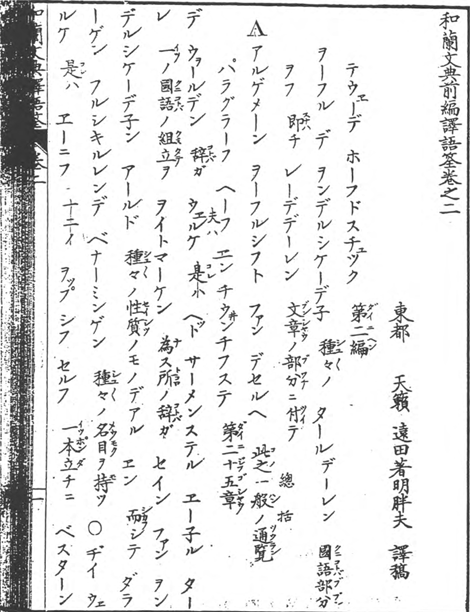 和蘭文典前編譯語筌卷之二
東都 天籟 遠田著明胖夫 譯稿
テウェーデ ホーフドスチュック 第二編
ヲーフル デ ヲンデルシケーデ子 種々ノ タールデーレン 國語部分
ヲフ 即チ レーデデーレン 文章ノ部分ニ付テ
A アルゲメーン ヲーフルシフト ファン デセルヘ 此之一般ノ通覧 總括
パラグラーフ ヘーフ エンチウィンチフステ 第二十五章
デ ウォールデン 辞ガ ウェルケ 夫ハ 是ホ ヘッド サーメンステル エー子ル ター
レ 一ノ國語ノ組立ヲ ヲイトマーケン 為ス所ノ辞ガ セイン ファン ヲン
デルシケーデ子ン アールド 種々ノ性質ノモノデアル エン 而シテ ダラ
ーゲン フルシキルレンデ ベナーミンゲン 種々ノ名目ヲ持ツ 〇 ヂイ ウェ
ルケ 是ハ エーニフ ナニイ ヲップ シフ セルフ 一本立チニ ベスターン